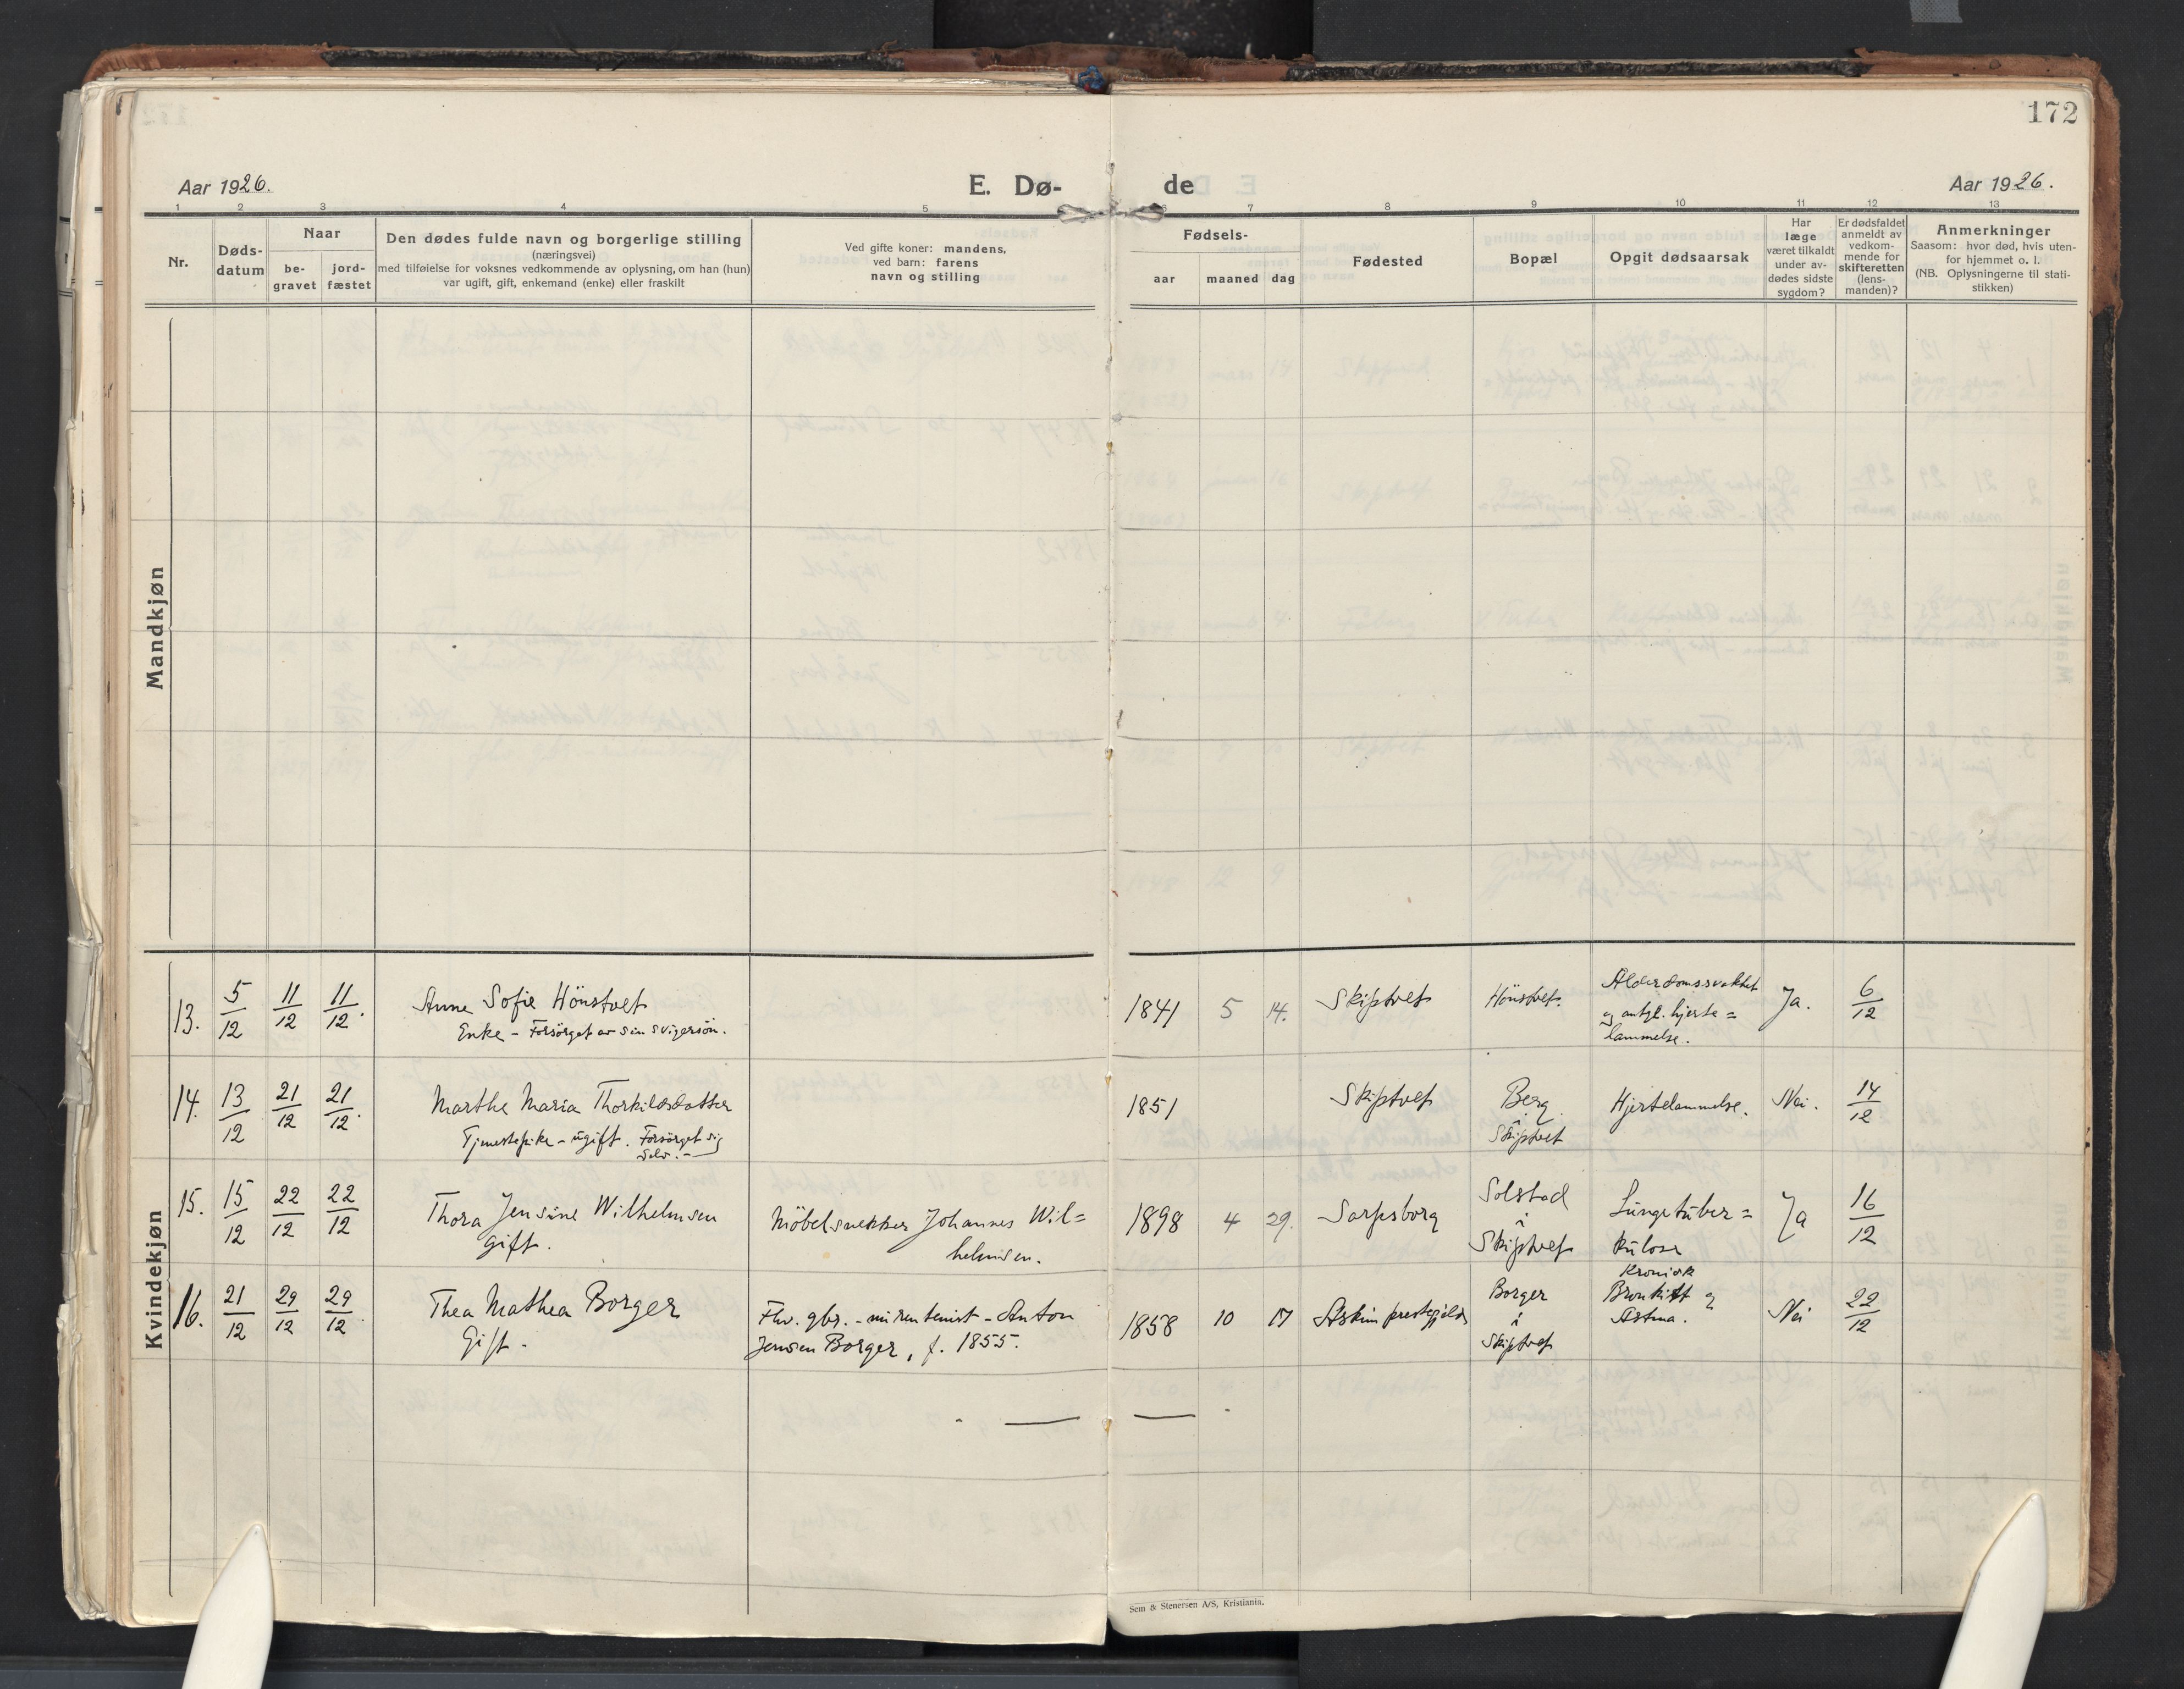 172
Aar 1926.
E. Dø-
de
Aar 1926.
1 2 3 4 5 6 7 8 9 10 11 12 13
Nr.
Døds-
datum
Naar
be-
gravet
jord-
fæstet
Den dødes fulde navn og borgerlige stilling
(næringsvei)
med tilføielse for voksnes vedkommende av oplysning, om han (hun)
var ugift, gift, enkemand (enke) eller fraskilt
Ved gifte koner: mandens,
ved barn: farens
navn og stilling
Fødsels-
aar
maaned
dag
Fødested
Bopæl
Opgit dødsaarsak
Har
læge
været tilkaldt
under av-
dødes sidste
sygdom?
Er dødsfaldet
anmeldt av
vedkom-
mende for
skifteretten
(lens-
manden)?
Anmerkninger
Saasom: hvor død, hvis uten-
for hjemmet o. l.
(NB. Oplysningerne til stati-
stikken)
Mandkjøn
Kvindekjøn
13. 5/12 11/12 11/12.
Anne Sofie Hönstvet
Enke – Forsörget av sin svigersön.
1841 5 14. Skiptvet
Hönstvet.
Alderdomssvakhet
og antgl. hjerte=
lammelse.
Ja. 6/12
14. 13/12 21/12 21/12.
Marthe Maria Thorkildsdatter
Tjenestepike – ugift. Forsörget sig
selv. –
1851 Skiptvet
Berg
i
Skiptvet
Hjertelammelse.
Nei. 14/12
15. 15/12 22/12 22/12
Thora Jensine Wilhelmsen
gift.
Möbelsnekker Johannes Wil=
helmsen.
1898 4 29. Sarpsborg
Solstad
i
Skiptvet
Lungetuber=
kulose
Ja 16/12
16. 21/12 29/12 29/12.
Thea Mathea Borger
Gift.
Fhv. gbr. – nu rentenist – Anton
Jensen Borger, f. 1855.
1858 10 17 Askim prestegjeld
Borger
i
Skiptvet
Kronisk
Bronkitt og
Astma.
Nei 22/12
Sem & Stenersen A/S, Kristiania.